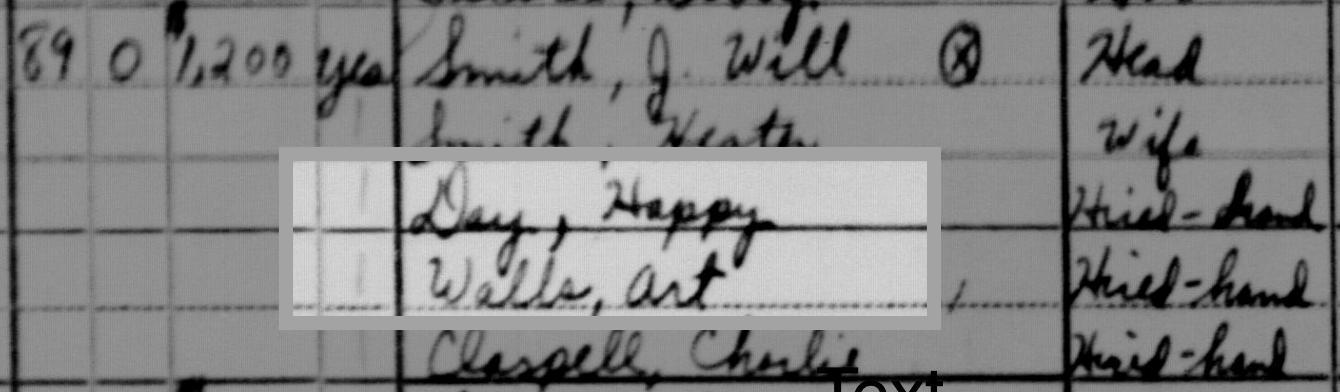 89 0 1,200 yes Smith, J. Will Ⓧ Head
Smith, Hester Wife
Day, Happy Hired-hand
Walls, Art Hired-hand
Claspell, Charlie Hired-hand
Text